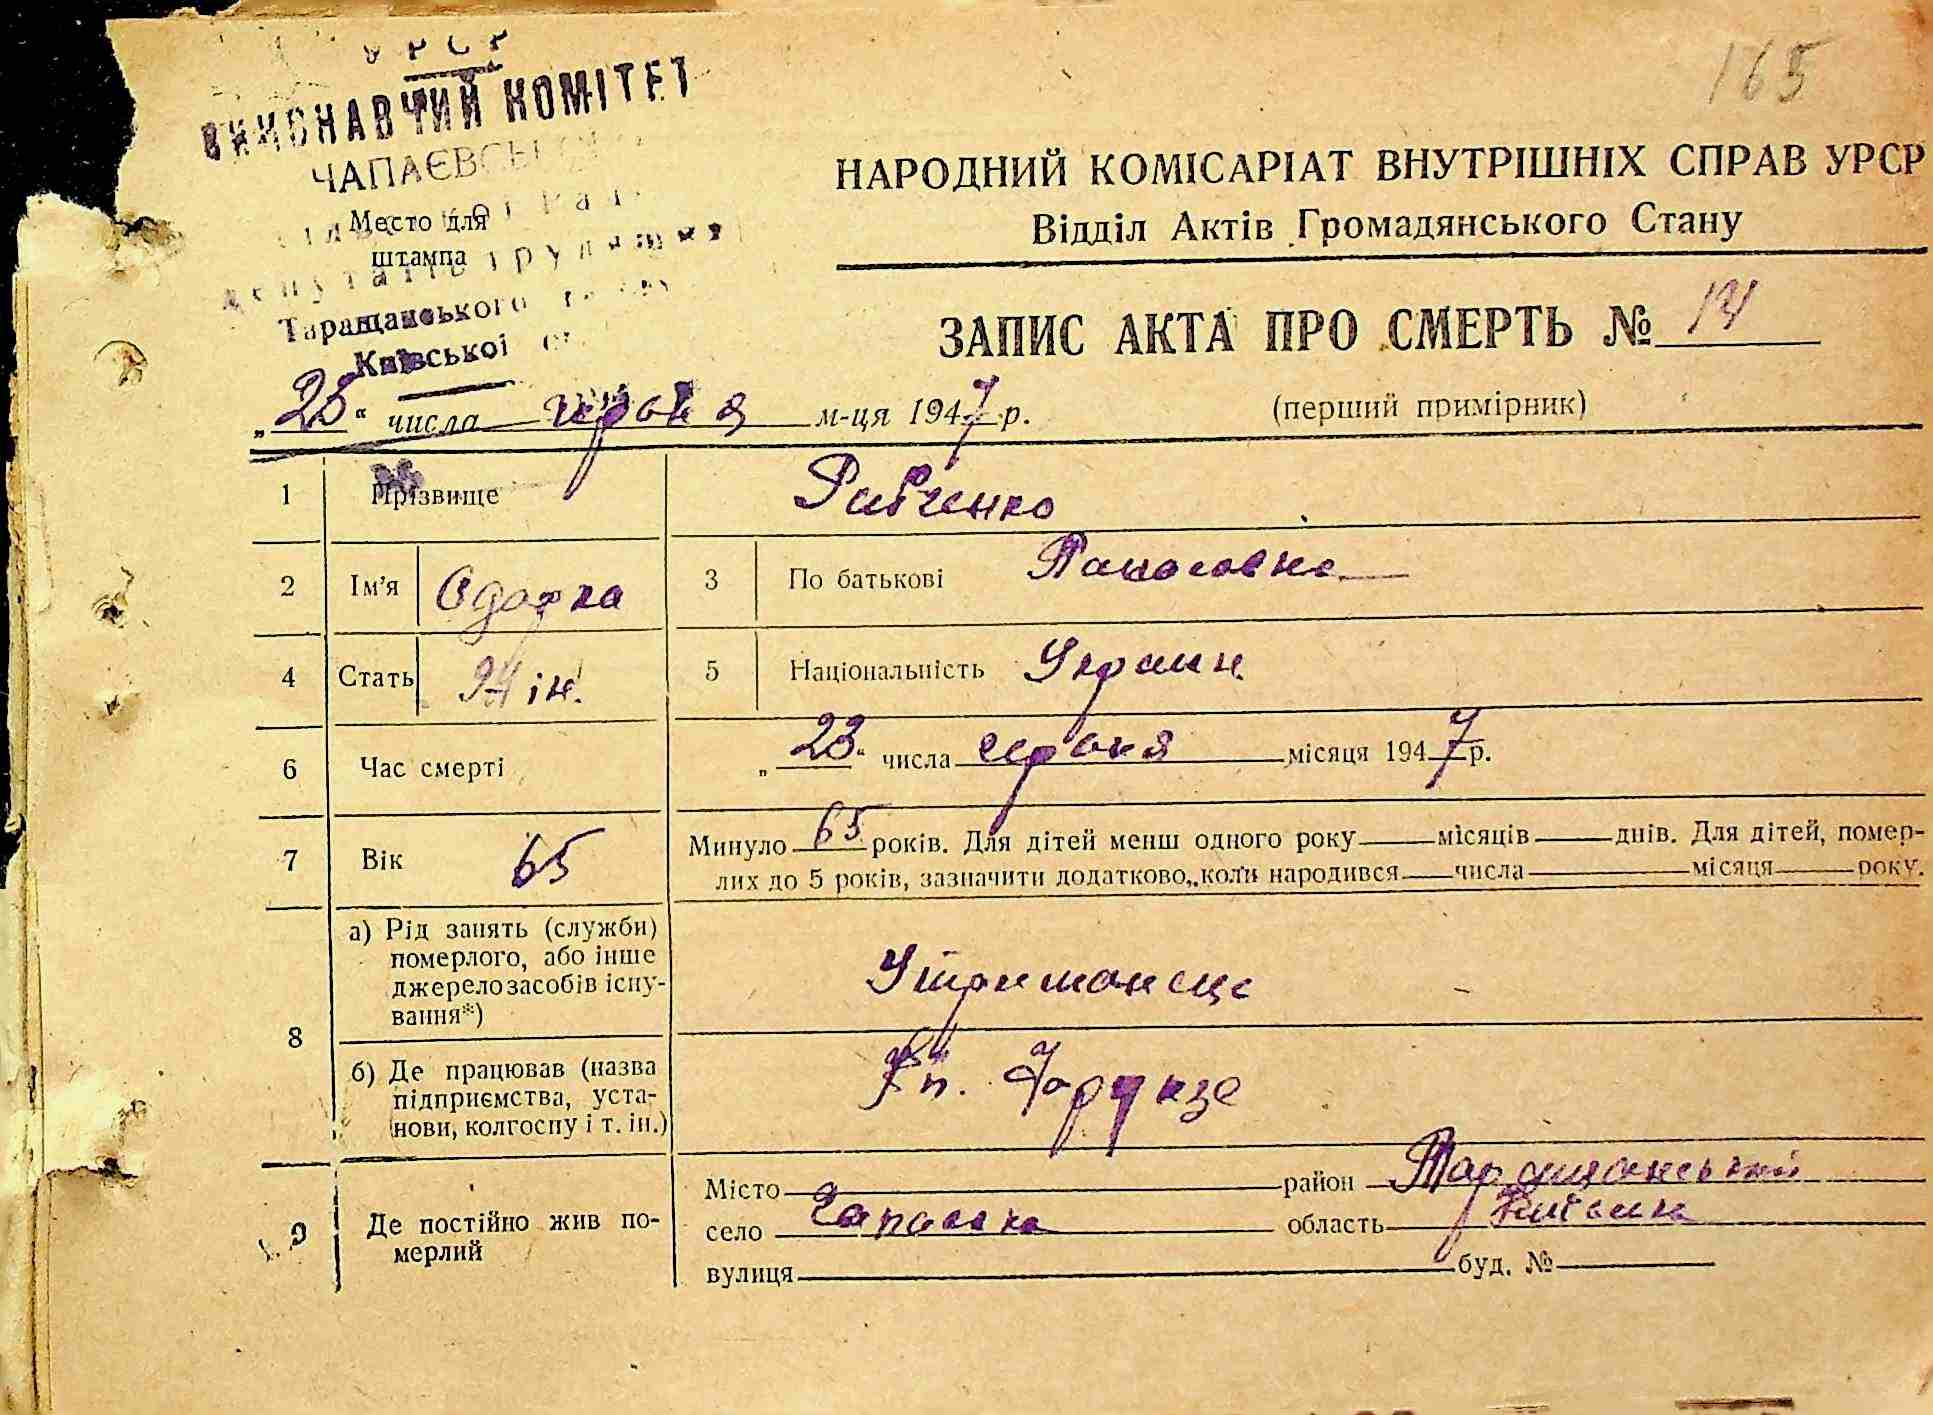 УРСР
165
ВИКОНАВЧИЙ КОМІТЕТ
ЧАПАЄВСЬКОЇ
НАРОДНИЙ КОМІСАРІАТ ВНУТРІШНІХ СПРАВ УРСР
Відділ Актів Громадянського Стану
Место для
штампа
депутатів трудящих
Таращанського
Київської
ЗАПИС АКТА ПРО СМЕРТЬ №
(перший примірник)
„ " числа червня м-ця 1947 р.
1 Прізвище Рибченко
2 Ім'я Одарка 3 По батькові Панасовна
4 Стать Жін. 5 Національність Україн.
6 Час смерті „23" числа червня місяця 1947 р.
7 Вік 65 Минуло 65 років. Для дітей менш одного року місяців днів. Для дітей, помер-
лих до 5 років, зазначити додатково, коли народився числа місяця року.
8 а) Рід занять (служби)
померлого, або інше
джерело засобів існу-
вання*)
Утриманець
б) Де працював (назва
підприємства, уста-
нови, колгоспу і т. ін.)
Фрунзе
9 Де постійно жив по-
мерлий
Місто район Таращанський
село Чапаєвка область Київськ
вулиця буд. №